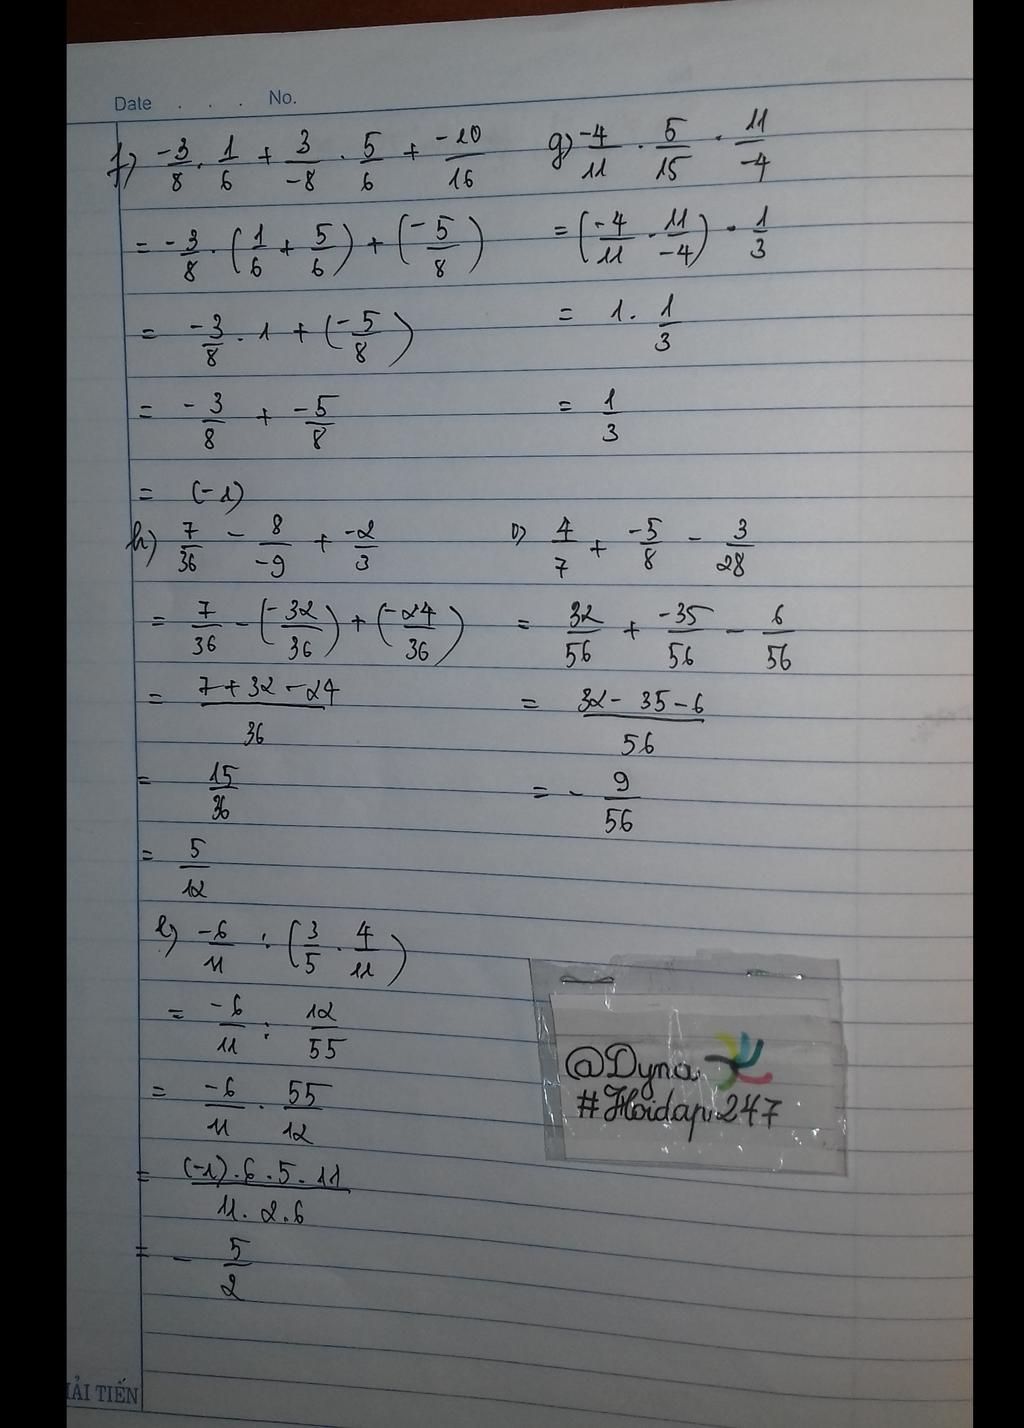 Date . . . No.
f) -3/8 . 1/6 + 3/-8 . 5/6 + -10/16
= -3/8 . (1/6 + 5/6) + (-5/8)
= -3/8 . 1 + (-5/8)
= -3/8 + -5/8
= (-1)
g) -4/11 . 5/15 . 11/-4
= (-4/11 . 11/-4) . 1/3
= 1 . 1/3
= 1/3
h) 7/36 - 8/-9 + -2/3
= 7/36 - (-32/36) + (-24/36)
= 7 + 32 - 24/36
= 15/36
= 5/12
i) 4/7 + -5/8 - 3/28
= 32/56 + -35/56 - 6/56
= 32 - 35 - 6/56
= - 9/56
l) -6/11 : (3/5 . 4/11)
= -6/11 : 12/55
= -6/11 . 55/12
= (-1) . 6 . 5 . 11/11 . 2 . 6
= - 5/2
@Dyna
#Hoidap247
HẢI TIẾN